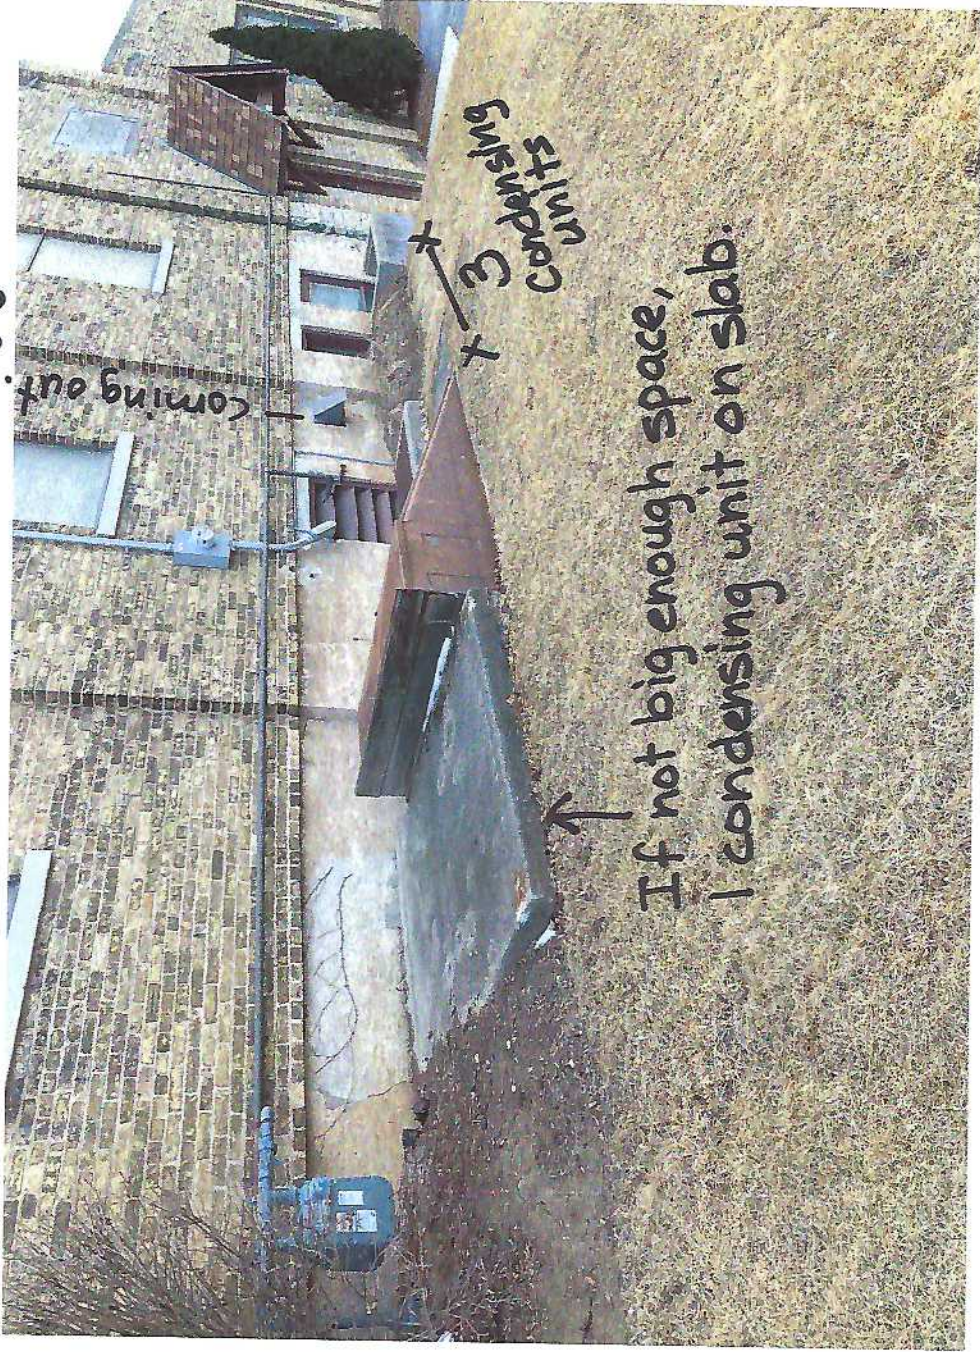 coming out
3
condensing
units
If not big enough space,
1 condensing unit on slab.